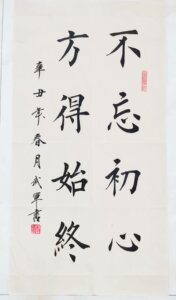 不忘初心
方得始終
辛丑年春月武軍書